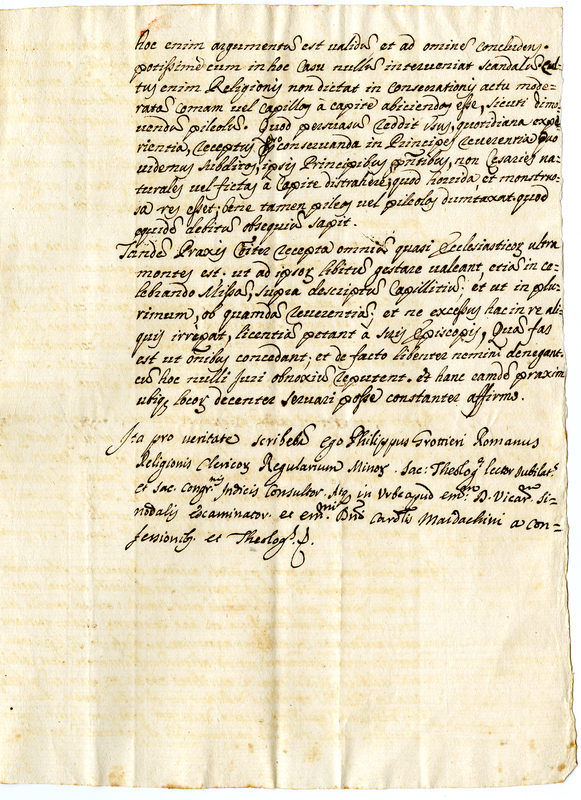 hoc enim argumentũ est validũ et ad omine concludens.
potissimè cum in hoc casu nullũ interveniat scandalũ. Cul-
tus enim Religionis non dictat in conservationis actu mode-
ratã comam vel capillos à capite abiiciendos esse, sicuti dimo-
vendũ pileolũ. Quod persuasũ reddit usus, quotidiana expe-
rientia, receptus conservanda in Principes reverentia quo
videmus subditos, ipsis Principibus pñtibus, non Cesaries na-
turales vel fictas à capite distrahere, quod horrida, et monstruo-
sa res esset; bene tamen pileos vel pileolos dumtaxat. quod
quidẽ debitũ obsequiũ sapit.
Tandẽ Praxis recepta omniũ quasi Ecclesiasticoꝝ ultra
montes est. ut ad ipsoꝝ libitũ gestare valeant, etiã in ce-
lebrando Missã, supra descriptũ capillitiũ; et ut in plu-
rimum, ob quamdã reverentiã; et ne excessus hac in re ali-
quis irrepat, licentiã petant à suis Episcopis, Quã fas
est ut oñibus concedant, et de facto libenter nemini denegant.
cũ hoc nulli Juri obnoxiũ reputent. et hanc eamdẽ praxim
ubiq; locoꝝ decenter servari posse constanter affirmo.
Ita pro veritate scribebã ego Philippus Grottieri Romanus
Religionis Clericoꝝ Regularium Minoꝝ. Sac: Theolog. lector Jubilat.
et Sac. Congr. Indicis Consultor. Atq; in Urbe apud em. D. Vicar. Si-
nodalis Examinator. et em. Dño Cardli Maidachini a con-
fessionib; et Theolog.